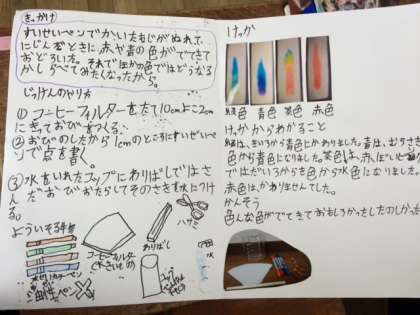 きっかけ
すいせいペンでかいたもじがぬれて、
にじんだときに赤や青の色がでてきて
おどろいた。それでほかの色ではどうなる
かしらべてみたくなったから。
じっけんのやりかた
① コーヒーフィルターをたて10cmよこ2cm
にきっておびをつくる。
② おびのしたから1cmのところにすいせいペ
ンで点を書く。
③ 水をいれたコップにわりばしではさ
んだおびをたらしてそのさきを水につけ
る。
よういする物
コーヒーフィルター
わりばし
ハサミ
水
油性ペン
けっか
青色
茶色
赤色
けっかからわかること
色から青色になりました。
赤色はかわりませんでした。
かんそう
色んな色がでてきておもしろかったしたのしかった